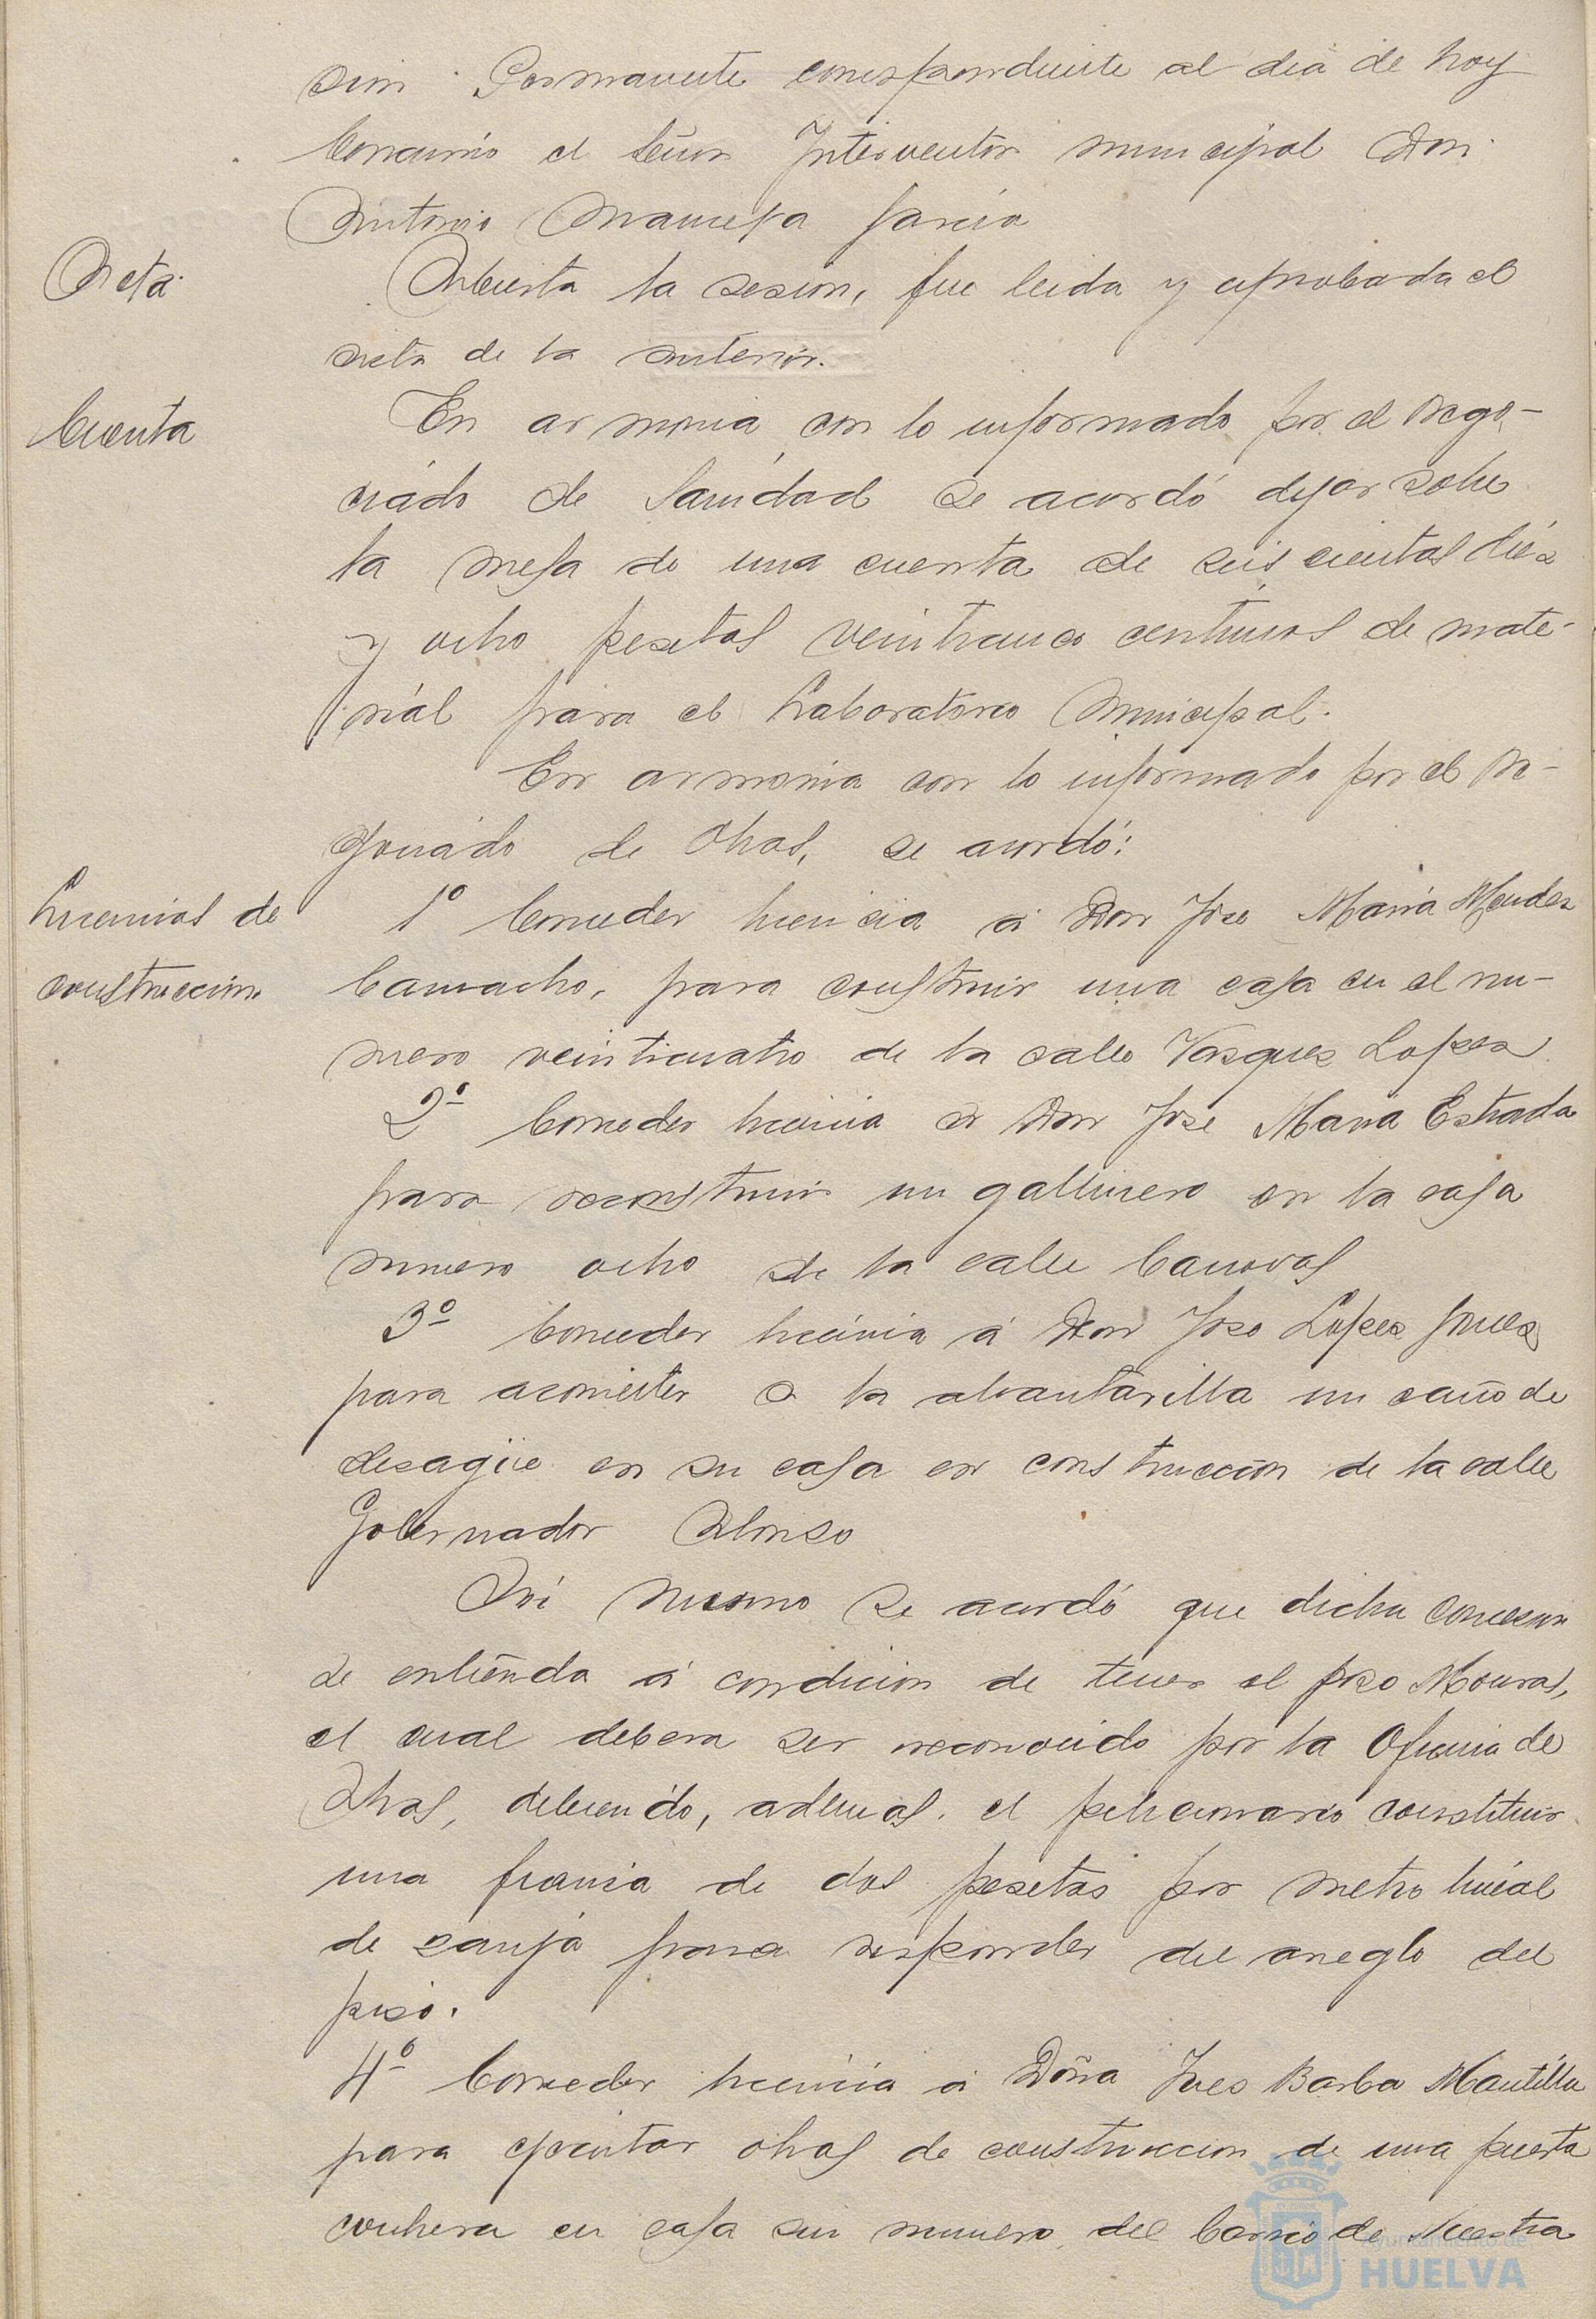 sion Permanente correspondiente al dia de hoy
Concurrio el Señor Interventor municipal Don
Antonio Garcia
Acta.
Abierta la sesion, fue leida y aprobada el
acta de la anterior.
Cuenta
En armonia con lo informado por el Nego-
ciado de Sanidad se acordó dejar sobre
la mesa de una cuenta de seis cientas diez
y ocho pesetas veinticinco centimos de mate-
rial para el Laboratorio Municipal.
En armonia con lo informado por el Ne-
gociado de Obras, se acordó:
Licencias de
construccion
1º Conceder licencia á Don Jose Maria Mendez
Camacho, para construir una casa en el nu-
mero veinticuatro de la calle Vazquez Lopez
2º Conceder licencia a Don Jose Maria Estrada
para reconstruir un gallinero en la casa
numero ocho de la calle Canovas
3º Conceder licencia á Don Jose Lopez
para acometer a la alcantarilla un caño de
desagüe en su casa en construccion de la calle
Gobernador Alonso
Asi mismo se acordó que dicha concesion
se entienda á condicion de tener el pozo Mouras,
el cual debera ser reconocido por la Oficina de
Obras, debiendo, ademas, el peticionario constituir
una fianza de dos pesetas por metro lineal
de zanja para responder del arreglo del
piso.
4º Conceder licencia á Doña Ines Barba Mantilla
para ejecutar obras de construccion de una puerta
cochera en casa sin numero del barrio de Nuestra
Ayuntamiento de
HUELVA